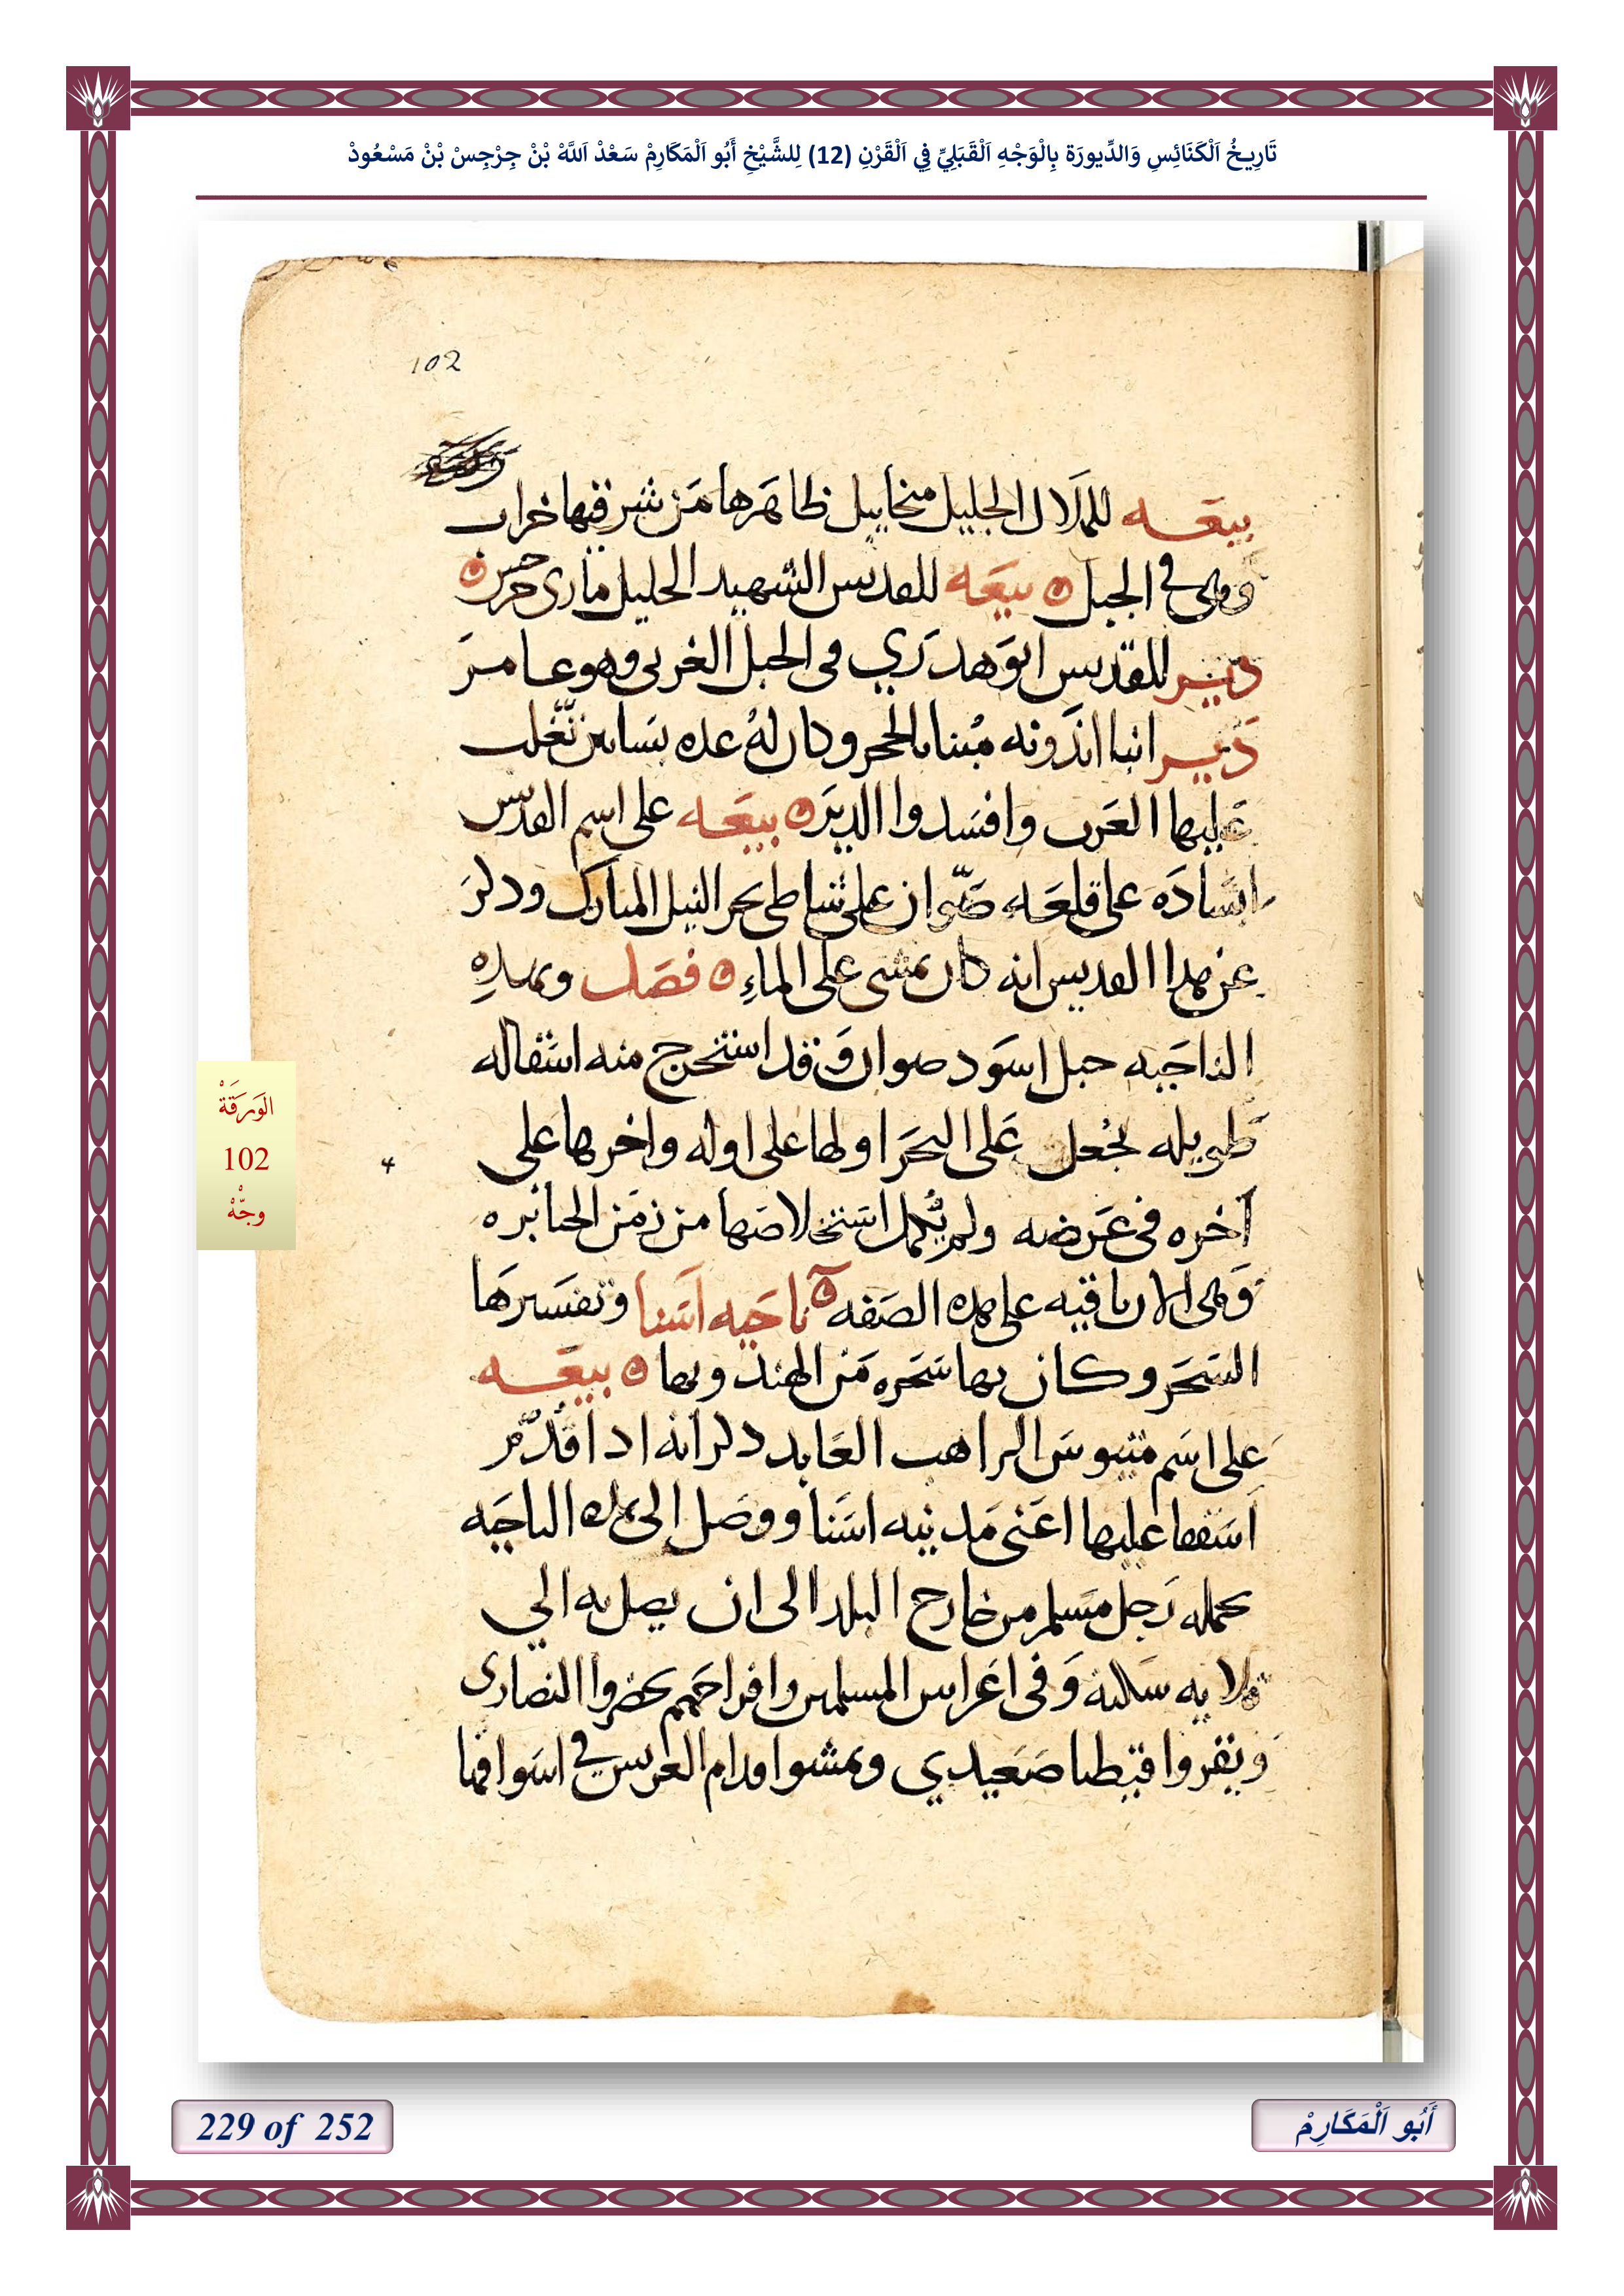 تَارِيخُ اَلْكَنَائِسِ وَالدِّيورَة بِالْوَجْهِ اَلْقَبَلِيِّ فِي اَلْقَرْنِ (12) لِلشَّيْخِ أَبُو اَلْمَكَارِمْ سَعْدْ اَللَّهْ بْنْ جِرْجِسْ بْنْ مَسْعُودْ
102
بيعه للملاك الجليل ميخاييل ظاهرها من شرقيها خراب
وهى فى الجبل بيعه للقديس الشهيد الجليل مارى جرجس
دير للقديس ابو هدري فى الجبل الغربى وهو عامر
دير انبا اندونه مبنا بالحجر وكان له عده بساتين تغلب
عليها العرب وافسدوا الدير بيعه على اسم القديس
ابساده على قلعه صوان على شاطى بحر النيل المبارك وذكر
عن هذا القديس انه كان يمشى على الماء فصل وبهذه
الناحيه جبل اسود صوان وقد استخرج منه اسقاله
طويله لجعل على البحر اولها على اوله واخرها على
آخره فى عرضه ولم يكمل استخلاصها من زمن الجبابره
وهى الان باقيه على هذه الصفه ناحيه اسنا وتفسيرها
السحر وكان بها سحره من الهند وبها بيعه
على اسم متيوس الراهب العابد ذكر انه اذا قدم
اسقفا عليها اعنى مدينه اسنا ووصل الى تلك الناحيه
يحمله رجل مسلم من خارج البلد الى ان يصل به الي
قلايه سكنه وفى اعراس المسلمين وافراحهم يحضروا النصارى
ويقروا قبطيا صعيدي ويمشوا قدام العريس في اسواقها
الوَرَقَةْ
102
وجْهْ
229 of 252
أَبُو اَلْمَكَارِمْ